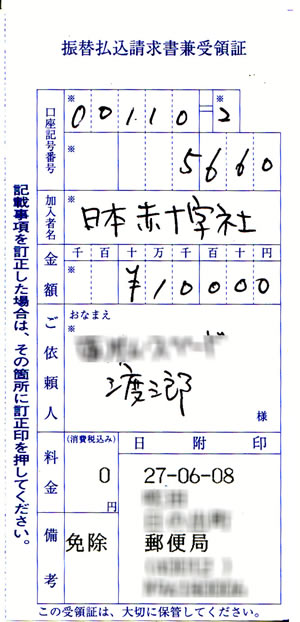 振替払込請求書兼受領証
口座記号番号
※ 00110=※2
5660
加入者名
※ 日本赤十字社
金額
千百十万千百十円
¥10000
ご依頼人
おなまえ
※
渡三郎
様
料金
(消費税込み)
0
円
日附印
27-06-08
備考
免除
郵便局
この受領証は、大切に保管してください。
記載事項を訂正した場合は、その箇所に訂正印を押してください。